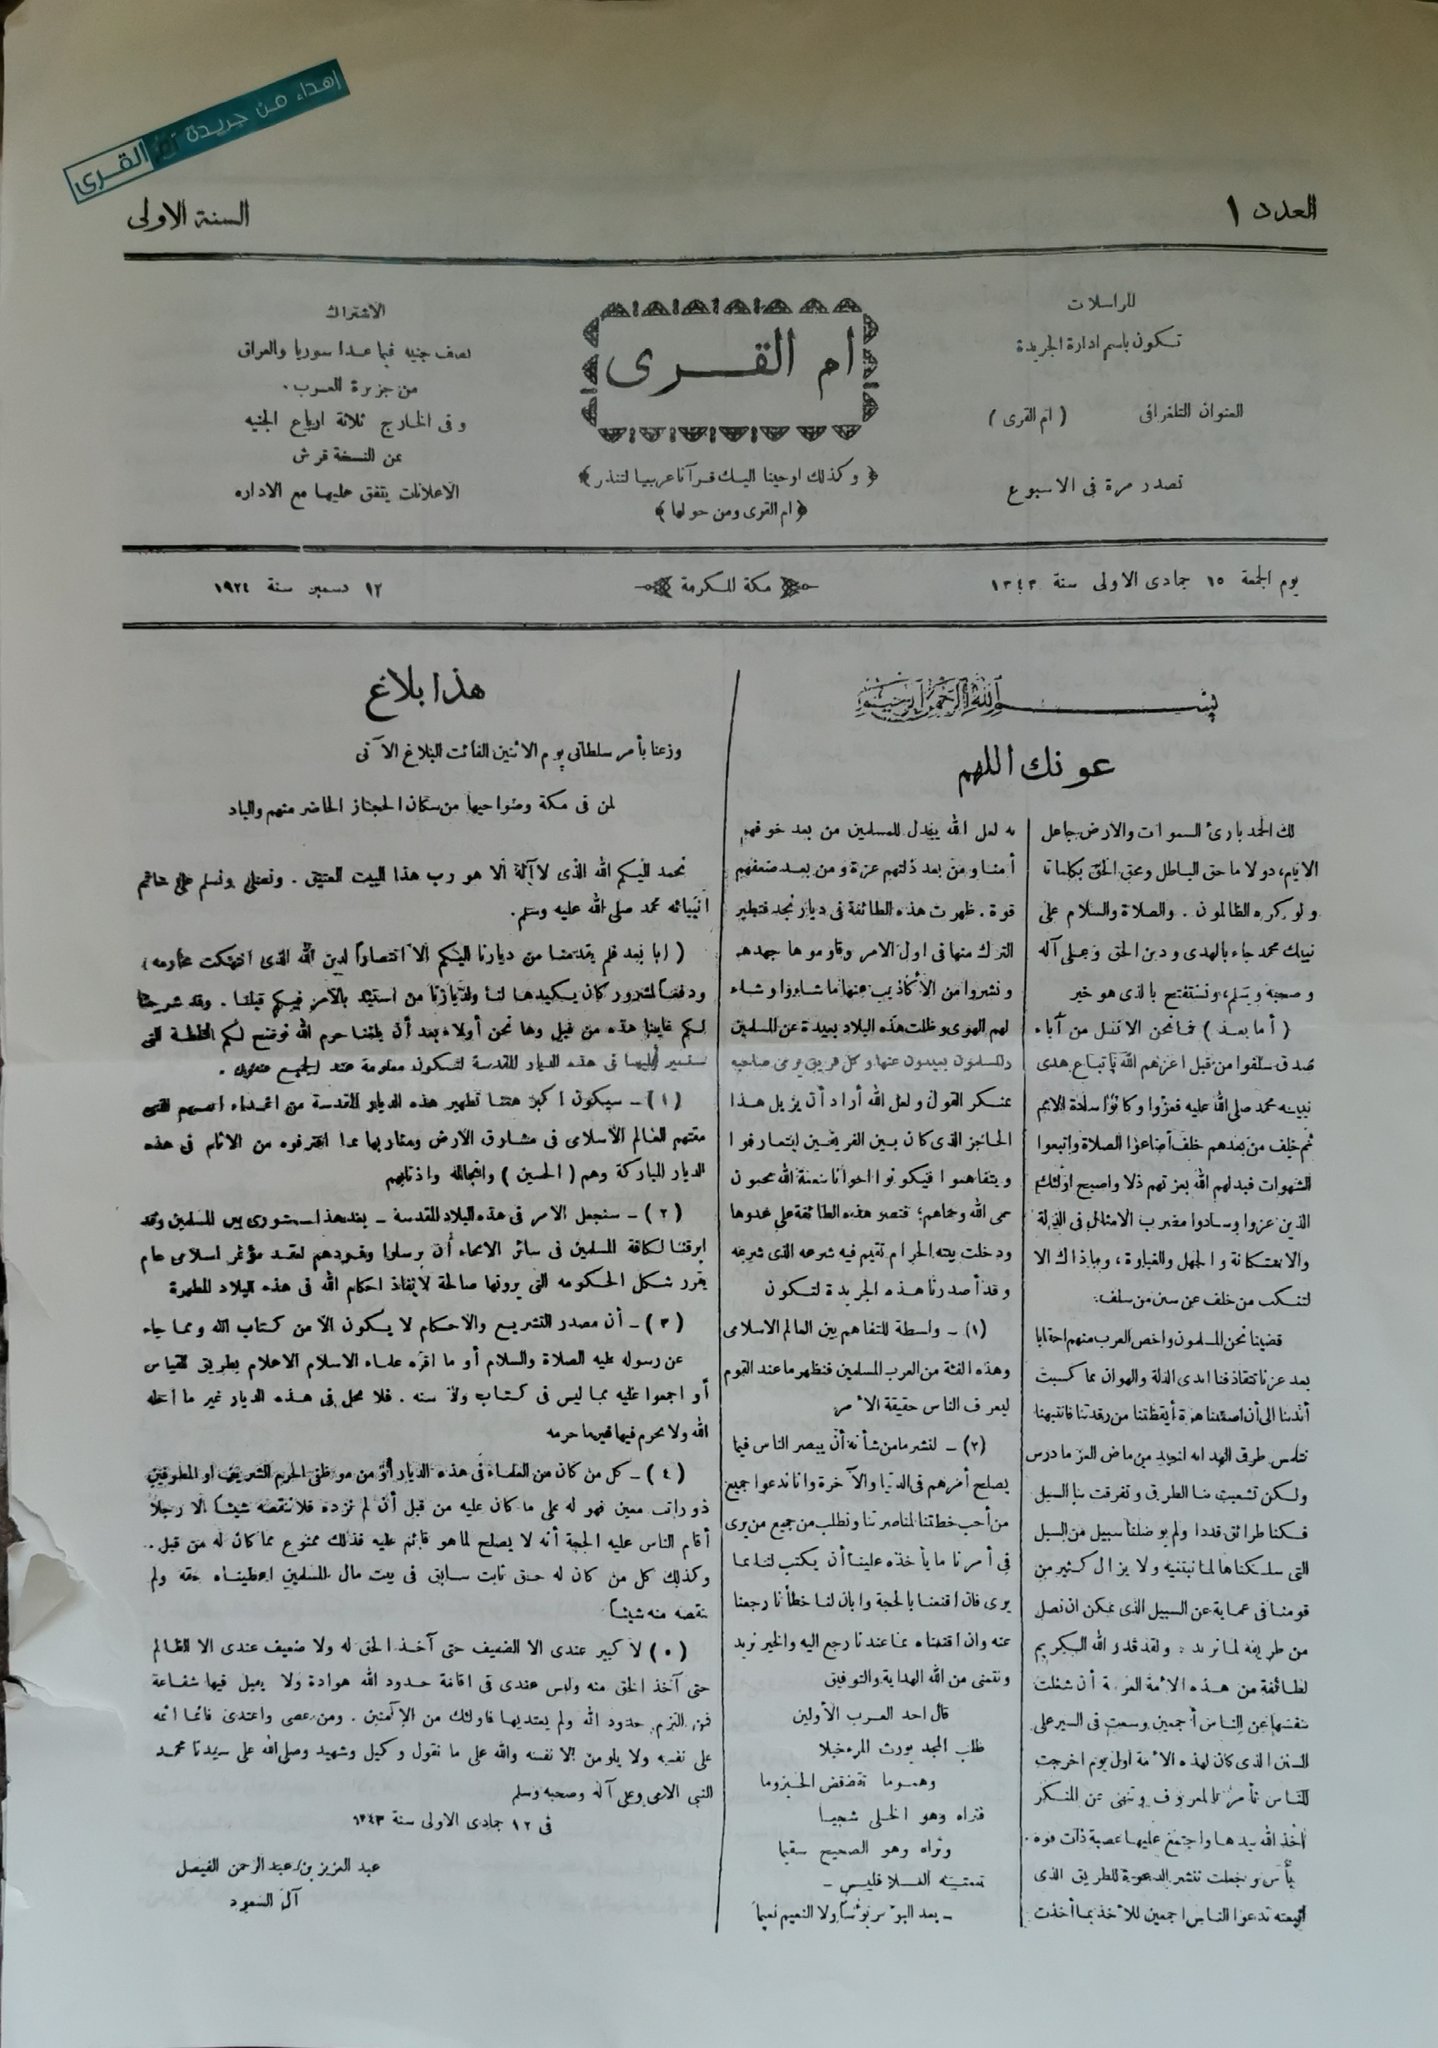 إهداء من جريدة أم القرى
العدد ١
السنة الاولى
المراسلات
تكون باسم ادارة الجريدة
العنوان التلغرافى ( ام القرى )
تصدر مرة فى الاسبوع
ام القرى
﴿ وكذلك اوحينا اليك قرآنا عربيا لتنذر ﴾
﴿ ام القرى ومن حولها ﴾
الاشتراك
نصف جنيه فيما عدا سوريا والعراق
من جزيرة العرب .
وفى الخارج ثلاثة ارباع الجنيه
ثمن النسخة قرش
الاعلانات يتفق عليها مع الاداره
يوم الجمعة ١٥ جمادى الاولى سنة ١٣٤٣
مكة المكرمة
١٢ دسمبر سنة ١٩٢٤
بسم الله الرحمن الرحيم
عونك اللهم
لك الحمد بارئ السموات والارض جاعل
الايام، دولا ماحق الباطل ومحق الحق بكلماته
ولو كره الظالمون . والصلاة والسلام على
نبيك محمد جاء بالهدى ودين الحق وعلى آله
وصحبه وسلم، ونستفتح بالذى هو خير
( أما بعد ) فما نحن الا نسل من آباء
صدق سلفوا من قبل اعزهم الله باتباع هدى
نبيه محمد صلى الله عليه فعزوا وكانوا سادة الامم
ثم خلف من بعدهم خلف أضاعوا الصلاة واتبعوا
الشهوات فبدلهم الله بعزتهم ذلا واصبح اولئك
الذين عزوا وسادوا مضرب الامثال فى الذلة
والاستكانة والجهل والغباوة، وماذاك الا
لتنكب من خلف عن سنن من سلف.
قضينا نحن المسلمون واخص العرب منهم احقابا
بعد عزنا تتقاذفنا ايدى الذلة والهوان بما كسبت
أيدينا الى أن اصابتنا هزة أيقظتنا من رقدتنا فانتبهنا
نتلمس طرق الهداية لنجدد من ماضى العز ما درس
ولكن تشعبت منا الطرق وتفرقت بنا السبل
فكنا طرائق قددا ولم يوصلنا سبيل من السبل
التى سلكناها لما نبتغيه ولا يزال كثير من
قومنا فى عماية عن السبيل الذى يمكن ان نصل
من طريقه لما نريد . ولقد قدر الله الكريم
لطائفة من هذه الامة العربية أن شغلت
بنفسها عن الناس أجمعين وسعت فى السير على
السنن الذى كان لهذه الأمة أول يوم اخرجت
للناس تأمر بالمعروف وتنهى عن المنكر
أخذ الله بيدها واجتمع عليها عصبة ذات قوة
بأس وجعلت تنشر الدعوة للطريق الذى
اتبعته تدعوا الناس اجمعين للأخذ بما أخذت
به لعل الله يبدل للمسلمين من بعد خوفهم
أمنا ومن بعد ذلتهم عزة ومن بعد ضعفهم
قوة . ظهرت هذه الطائفة فى ديار نجد فتطير
الترك منها فى اول الامر وقاوموها جهدهم
ونشروا من الأكاذيب عنها ما شاءوا وشاء
لهم الهوى وظلت هذه البلاد بعيدة عن المسلمين
والمسلمون بعيدون عنها وكل فريق يرمى صاحبه
بمنكر القول ولعل الله أراد أن يزيل هذا
الحاجز الذى كان بين الفريقين ليتعارفوا
ويتفاهموا فيكونوا اخوانا بنعمة الله محبون
حمى الله وحماهم؛ فنصر هذه الطائفة على عدوها
ودخلت بيته الحرام تقيم فيه شرعه الذى شرعه
وقد أصدرنا هذه الجريدة لتكون
(١) - واسطة للتفاهم بين العالم الاسلامى
وهذه الفئة من العرب المسلمين فنظهر ما عند القوم
ليعرف الناس حقيقة الأمر
(٢) - لنشر ما من شأنه أن يبصر الناس فيما
يصلح أمرهم فى الدنيا والآخرة وانا ندعوا جميع
من أحب خطتنا لمناصرتنا ونطلب من جميع من يرى
فى أمرنا ما يأخذه علينا أن يكتب لنا بما
يرى فان اقنعنا بالحجة وابان لنا خطأنا رجعنا
عنه وان اقنعناه بما عندنا رجع اليه والخير نريد
ونتمنى من الله الهداية والتوفيق
قال احد العرب الأولين
طلب المجد يورث المرء خبلا
وهموما تقضقض الحيزوما
فتراه وهو الخلى شجيا
وتراه وهو الصحيح سقيما
تيمته العلا فليس -
- يعد البؤس بؤساً ولا النعيم نعيما
هذا بلاغ
وزعنا بأمر سلطانى يوم الاثنين الفائت البلاغ الآتى
لمن فى مكة وضواحيها من سكان الحجاز الحاضر منهم والباد
نحمد اليكم الله الذى لا آله ألا هو رب هذا البيت العتيق . ونصلى ونسلم على خاتم
انبيائه محمد صلى الله عليه وسلم.
( اما بعد فلم يقدمنا من ديارنا اليكم الا انتصاراً لدين الله الذى انتهكت محارمه،
ودفعاً لشرور كان يكيدها لنا ولديارنا من استبد بالامر فيكم قبلنا . وقد شرحنا
لكم غايتنا هذه من قبل وها نحن أولاء بعد أن بلغنا حرم الله نوضح لكم الخطة التى
سنسير عليها فى هذه الديار المقدسة لتكون معلومة عند الجميع فنقول .
(١) - سيكون اكبر همنا تطهير هذه الديار المقدسة من اعداء انفسهم الذين
مقتهم العالم الاسلامى فى مشارق الارض ومغاربها بما اقترفوه من الاثام فى هذه
الديار المباركة وهم ( الحسين ) وانجاله واذنابهم
(٢) - سنجعل الامر فى هذه البلاد المقدسة - بعد هذا - شورى بين المسلمين وقد
ابرقنا لكافة المسلمين فى سائر الانحاء أن يرسلوا وفودهم لعقد مؤتمر اسلامى عام
يقرر شكل الحكومه التى يرونها صالحة لانفاذ احكام الله فى هذه البلاد المطهرة
(٣) - أن مصدر التشريع والاحكام لا يكون الا من كتاب الله ومما جاء
عن رسوله عليه الصلاة والسلام أو ما اقره علماء الاسلام الاعلام بطريق القياس
أو اجمعوا عليه مما ليس فى كتاب ولا سنه . فلا محل فى هذه الديار غير ما احله
الله ولا محرم فيها غير ما حرمه
(٤) - كل من كان من العلماء فى هذه الديار أو من موظفى الحرم الشريف او المطوفين
ذو راتب معين فهو له على ما كان عليه من قبل أن لم نزده فلا ننقصه شيئاً الا رجلاً
أقام الناس عليه الحجة أنه لا يصلح لما هو قائم عليه فذلك ممنوع مما كان له من قبل .
وكذلك كل من كان له حق ثابت سابق فى بيت مال المسلمين اعطيناه حقه ولم
ننقصه منه شيئاً
(٥) لا كبير عندى الا الضعيف حتى آخذ الحق له ولا ضعيف عندى الا الظالم
حتى آخذ الحق منه وليس عندى فى اقامة حدود الله هوادة ولا يقبل فيها شفاعة
فمن التزم حدود الله ولم يعتديها فاولئك من الآمنين . ومن عصى واعتدى فانما اثمه
على نفسه ولا يلومن الا نفسه والله على ما نقول وكيل وشهيد وصلى الله على سيدنا محمد
النبى الامى وعلى آله وصحبه وسلم
فى ١٢ جمادى الاولى سنة ١٣٤٣
عبد العزيز بن عبد الرحمن الفيصل
آل السعود